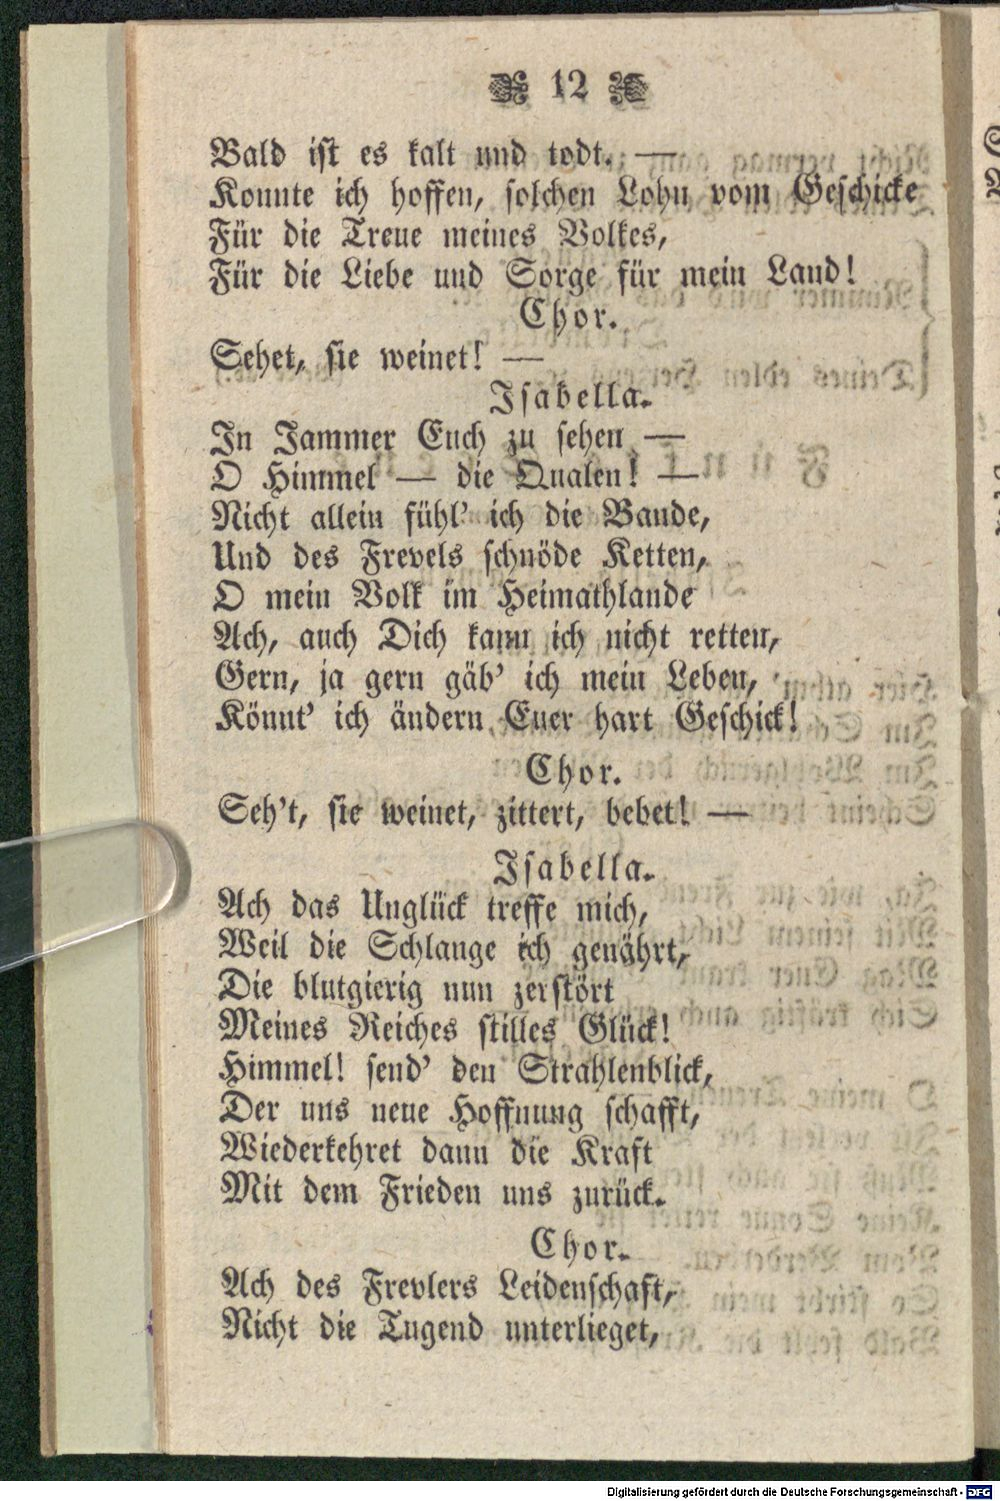 12
Bald ist es kalt und todt. —
Konnte ich hoffen, solchen Lohn vom Geschicke
Für die Treue meines Volkes,
Für die Liebe und Sorge für mein Land!
Chor.
Sehet, sie weinet! —
Isabella.
In Jammer Euch zu sehen —
O Himmel — die Qualen! —
Nicht allein fühl' ich die Bande,
Und des Frevels schnöde Ketten,
O mein Volk im Heimathlande
Ach, auch Dich kann ich nicht retten,
Gern, ja gern gäb' ich mein Leben,
Könnt' ich ändern Euer hart Geschick!
Chor.
Seh't, sie weinet, zittert, bebet! —
Isabella.
Ach das Unglück treffe mich,
Weil die Schlange ich genährt,
Die blutgierig nun zerstört
Meines Reiches stilles Glück!
Himmel! send' den Strahlenblick,
Der uns neue Hoffnung schafft,
Wiederkehret dann die Kraft
Mit dem Frieden uns zurück.
Chor.
Ach des Frevlers Leidenschaft,
Nicht die Tugend unterlieget,
Digitalisierung gefördert durch die Deutsche Forschungsgemeinschaft - DFG